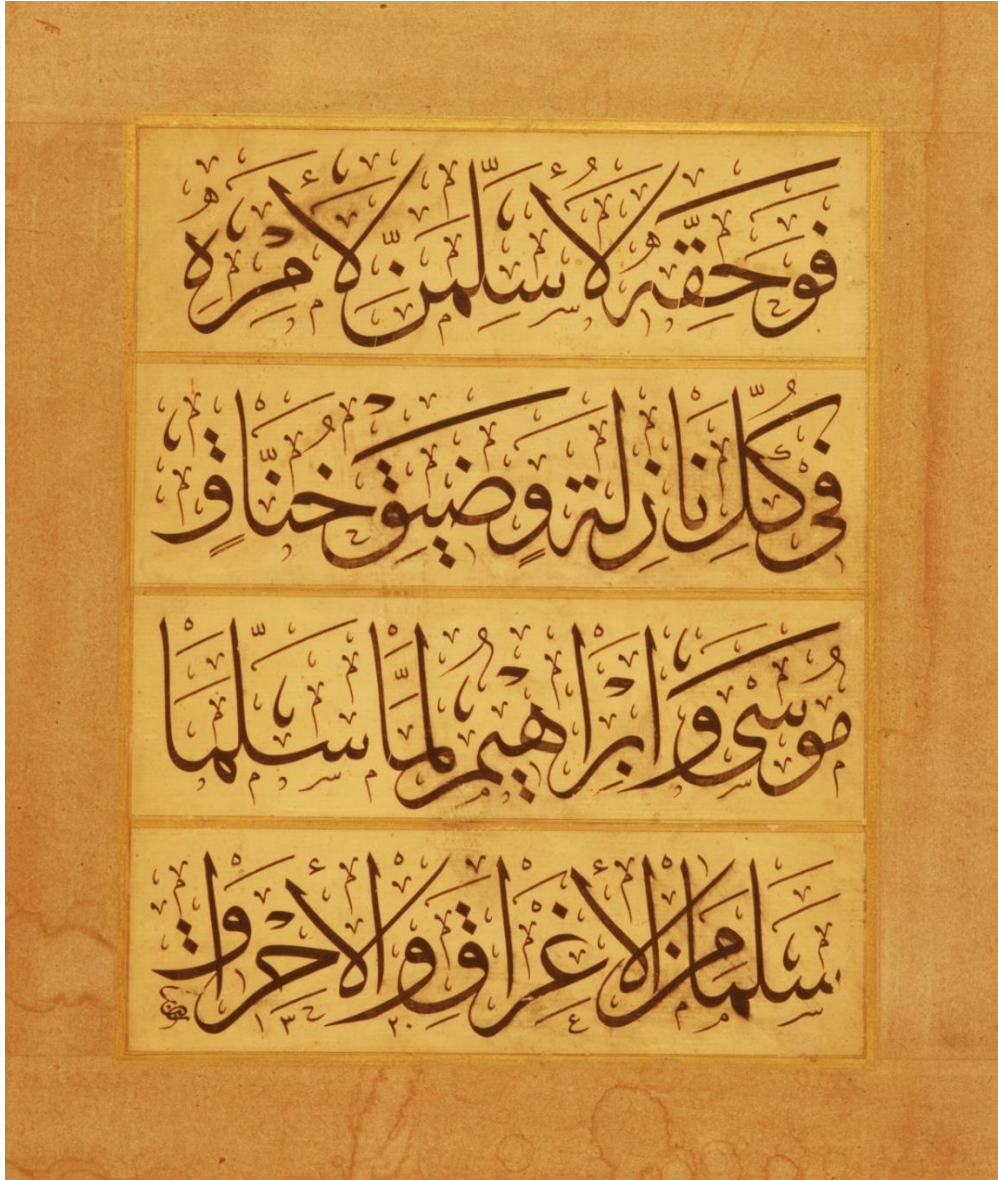 فَوَحَقِّهِ لَأُسَلِّمَنَّ لِأَمْرِهِ
فِي كُلِّ نَازِلَةٍ وَضِيقِ خُنَاقِ
مُوسَى وَإِبْرَاهِيمُ لَمَّا سَلَّمَا
سَلِمَا مِنَ الْإِغْرَاقِ وَالْإِحْرَاقِ